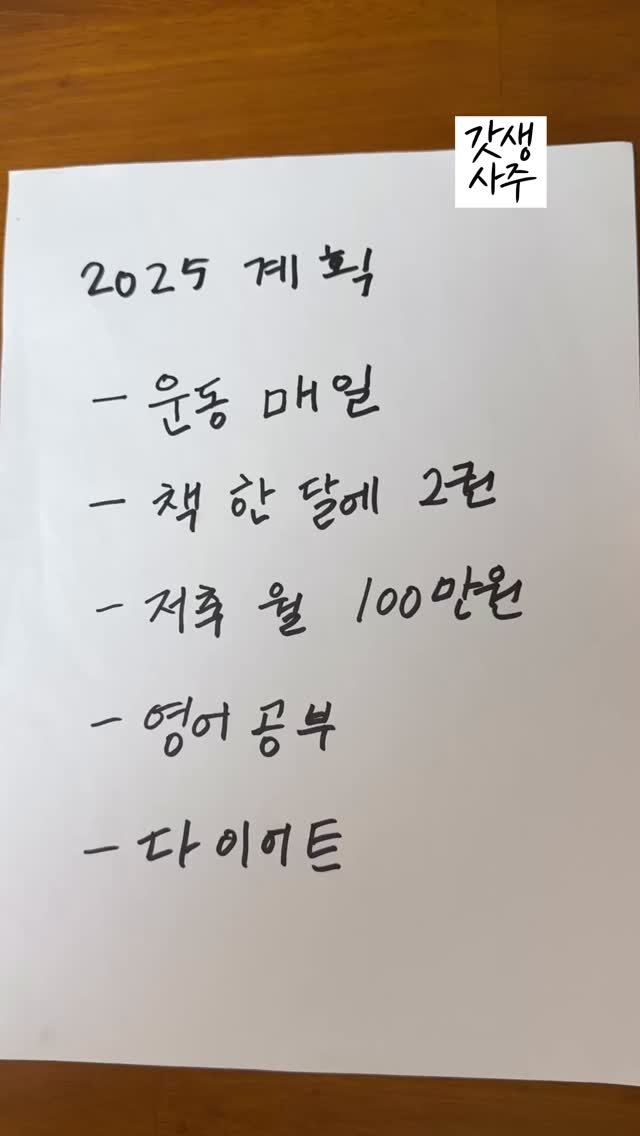 갓생
사주
2025 계획
- 운동 매일
- 책 한 달에 2권
- 저축 월 100만원
- 영어 공부
- 다이어트